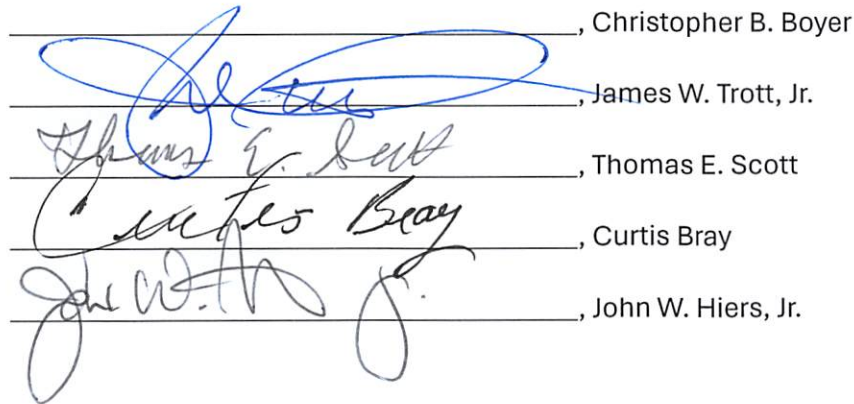 , Christopher B. Boyer
, James W. Trott, Jr.
Thomas E. Scott , Thomas E. Scott
Curtis Bray , Curtis Bray
John W. H Jr. , John W. Hiers, Jr.